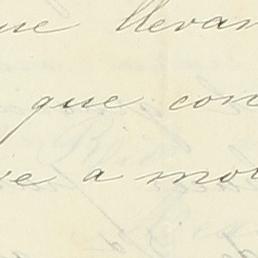 ue llevan
que con
ve a mo